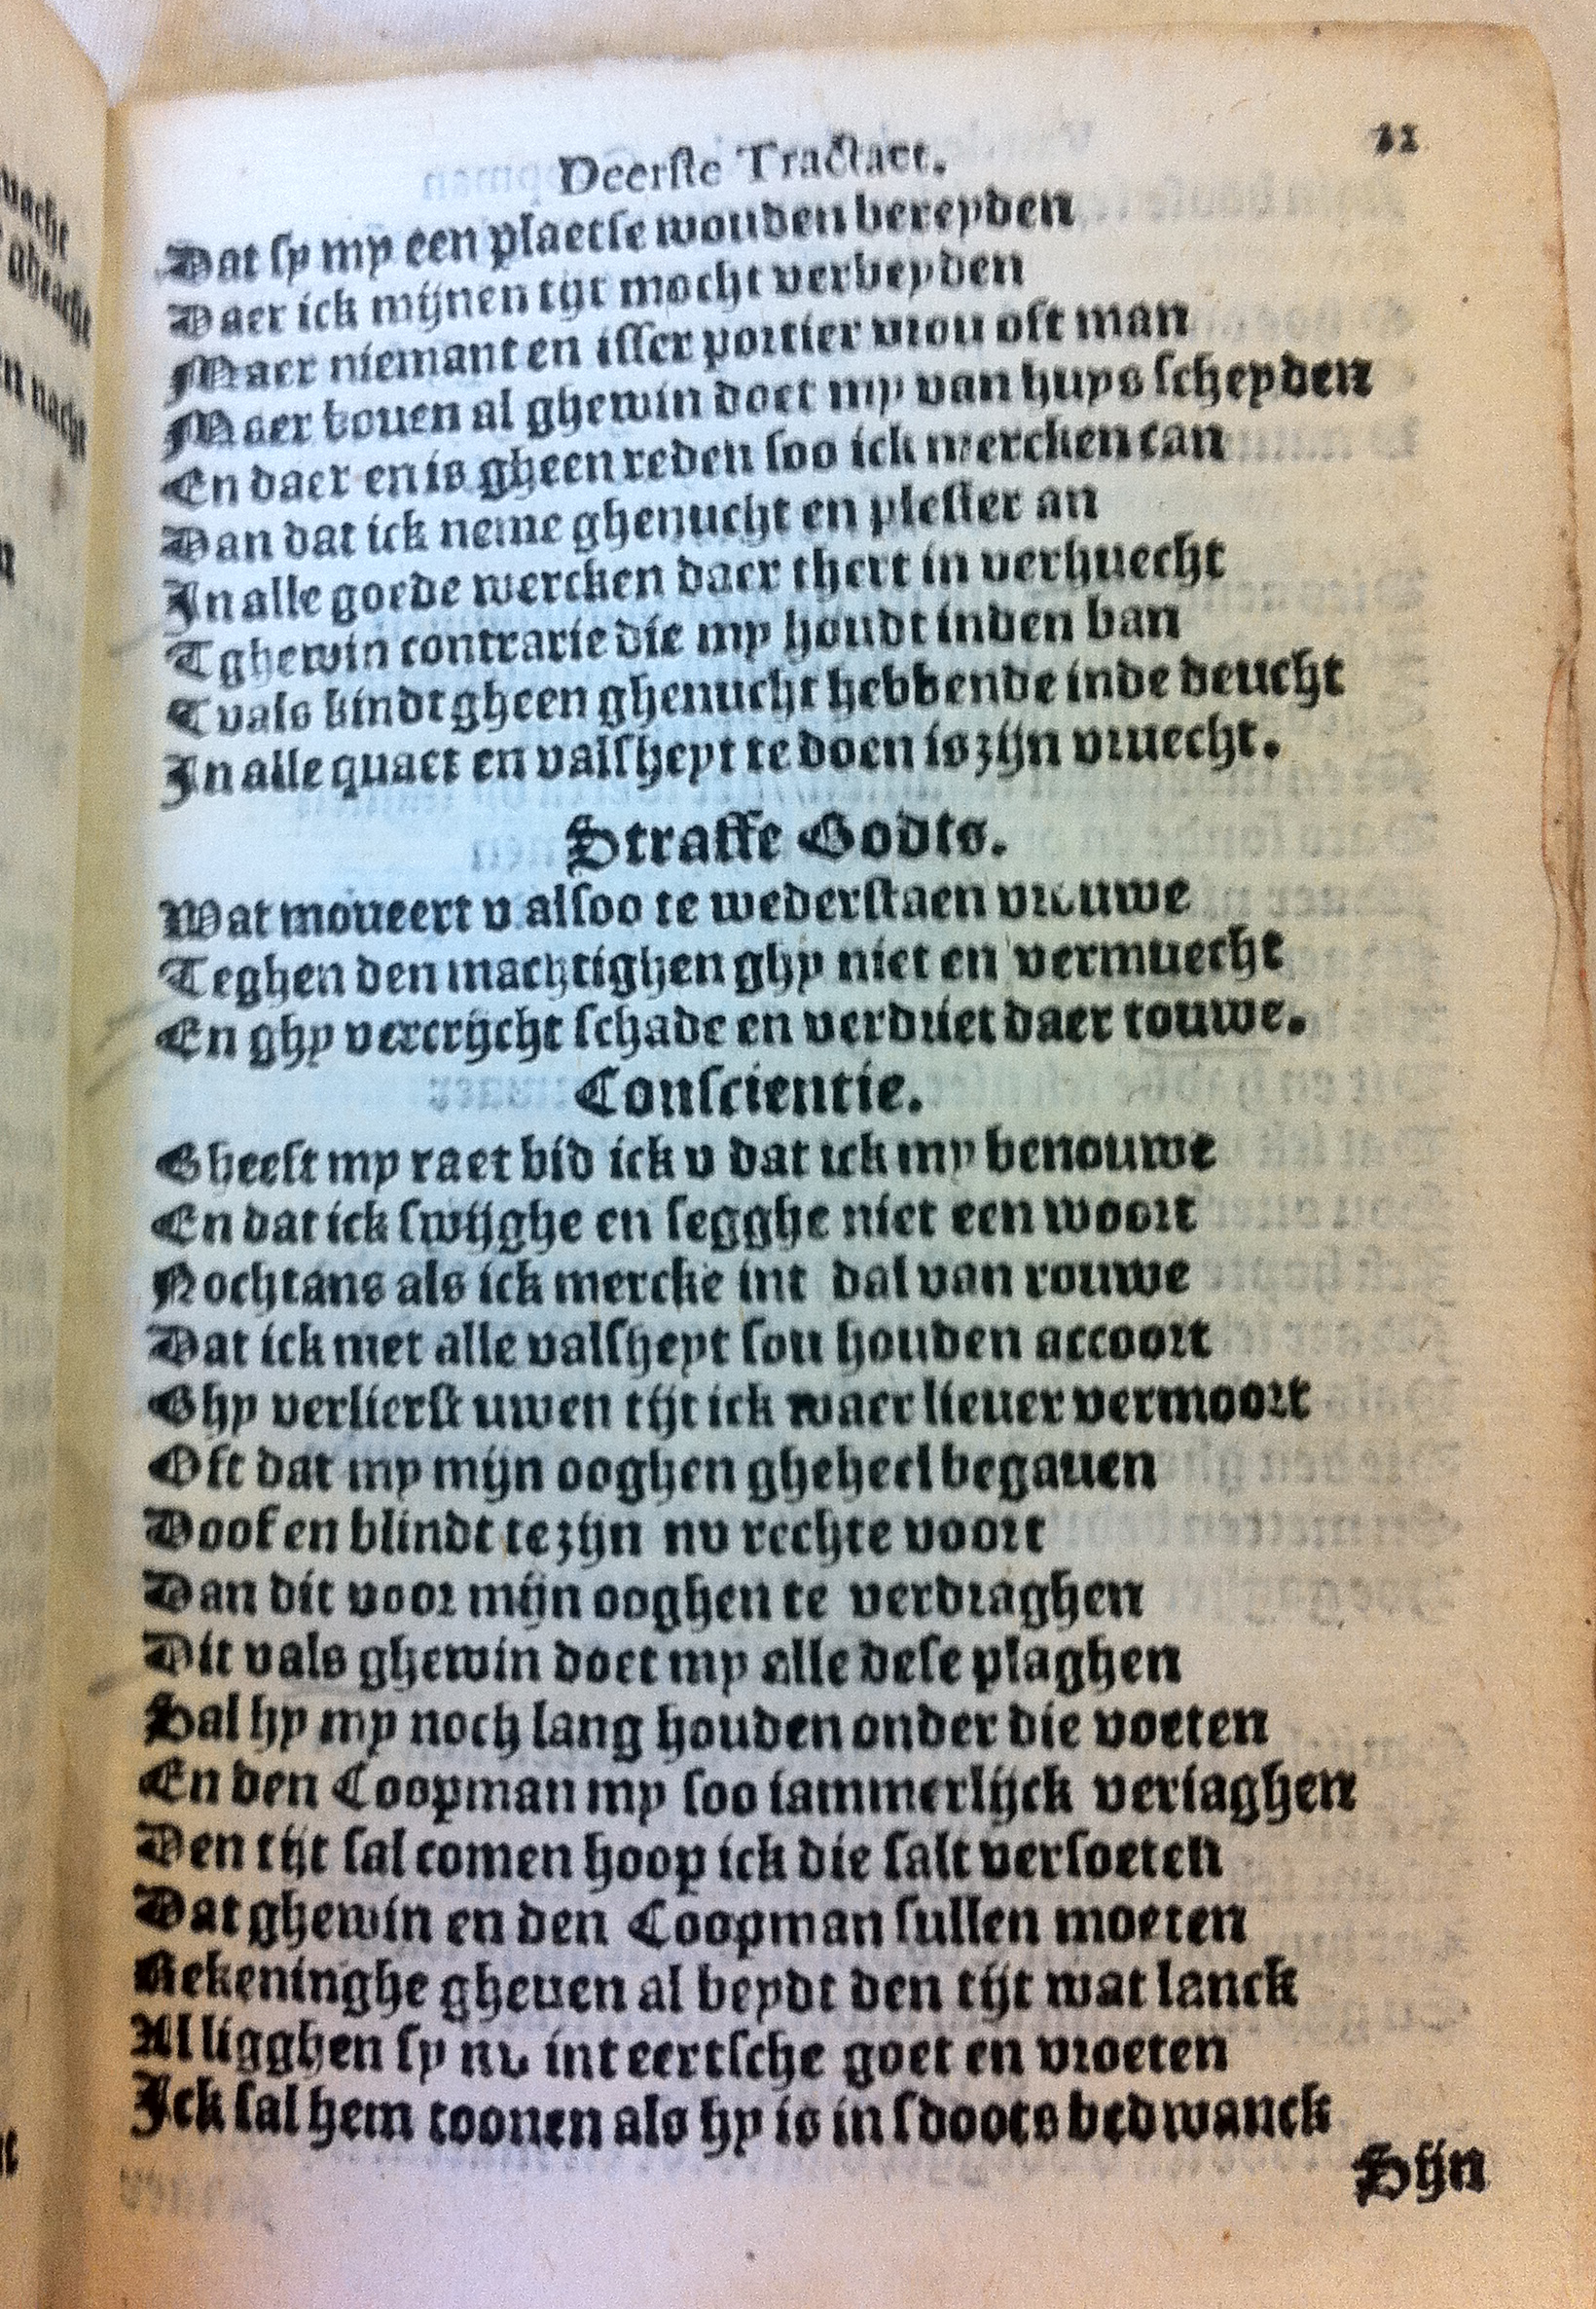 Deerste Tractaet.
21
Dat sy my een plaetse wouden bereyden
Daer ick mijnen tijt mocht verbeyden
Maer niemant en isser portier vrou oft man
Maer bouen al ghewin doet my van huys scheyden
En daer en is gheen reden soo ick mercken can
Dan dat ick neme ghenucht en plesier an
In alle goede wercken daer thert in verhuecht
Tghewin contrarie die my houdt inden ban
Tvals kindt gheen ghenucht hebbende inde deucht
In alle quaet en valsheyt te doen is zijn vruecht.
Straffe Godts.
Wat moueert v alsoo te wederstaen vrouwe
Teghen den machtighen ghy niet en vermuecht
En ghy vercrijcht schade en verdriet daer touwe.
Conscientie.
Gheeft my raet bid ick v dat ick my benouwe
En dat ick swijghe en segghe niet een woort
Nochtans als ick mercke int dal van rouwe
Dat ick met alle valsheyt sou houden accoort
Ghy verlierst uwen tijt ick waer lieuer vermoort
Oft dat my mijn ooghen gheheel begauen
Doof en blindt te zijn nv rechte voort
Dan dit voor mijn ooghen te verdraghen
Dit vals ghewin doet my alle dese plaghen
Sal hy my noch lang houden onder die voeten
En den Coopman my soo iammerlijck veriaghen
Den tijt sal comen hoop ick die salt versoeten
Dat ghewin en den Coopman sullen moeten
Rekeninghe gheuen al beydt den tijt wat lanck
Al ligghen sy nu int eertsche goet en vroeten
Ick sal hem toonen als hy is in sdoots bedwanck
Sijn